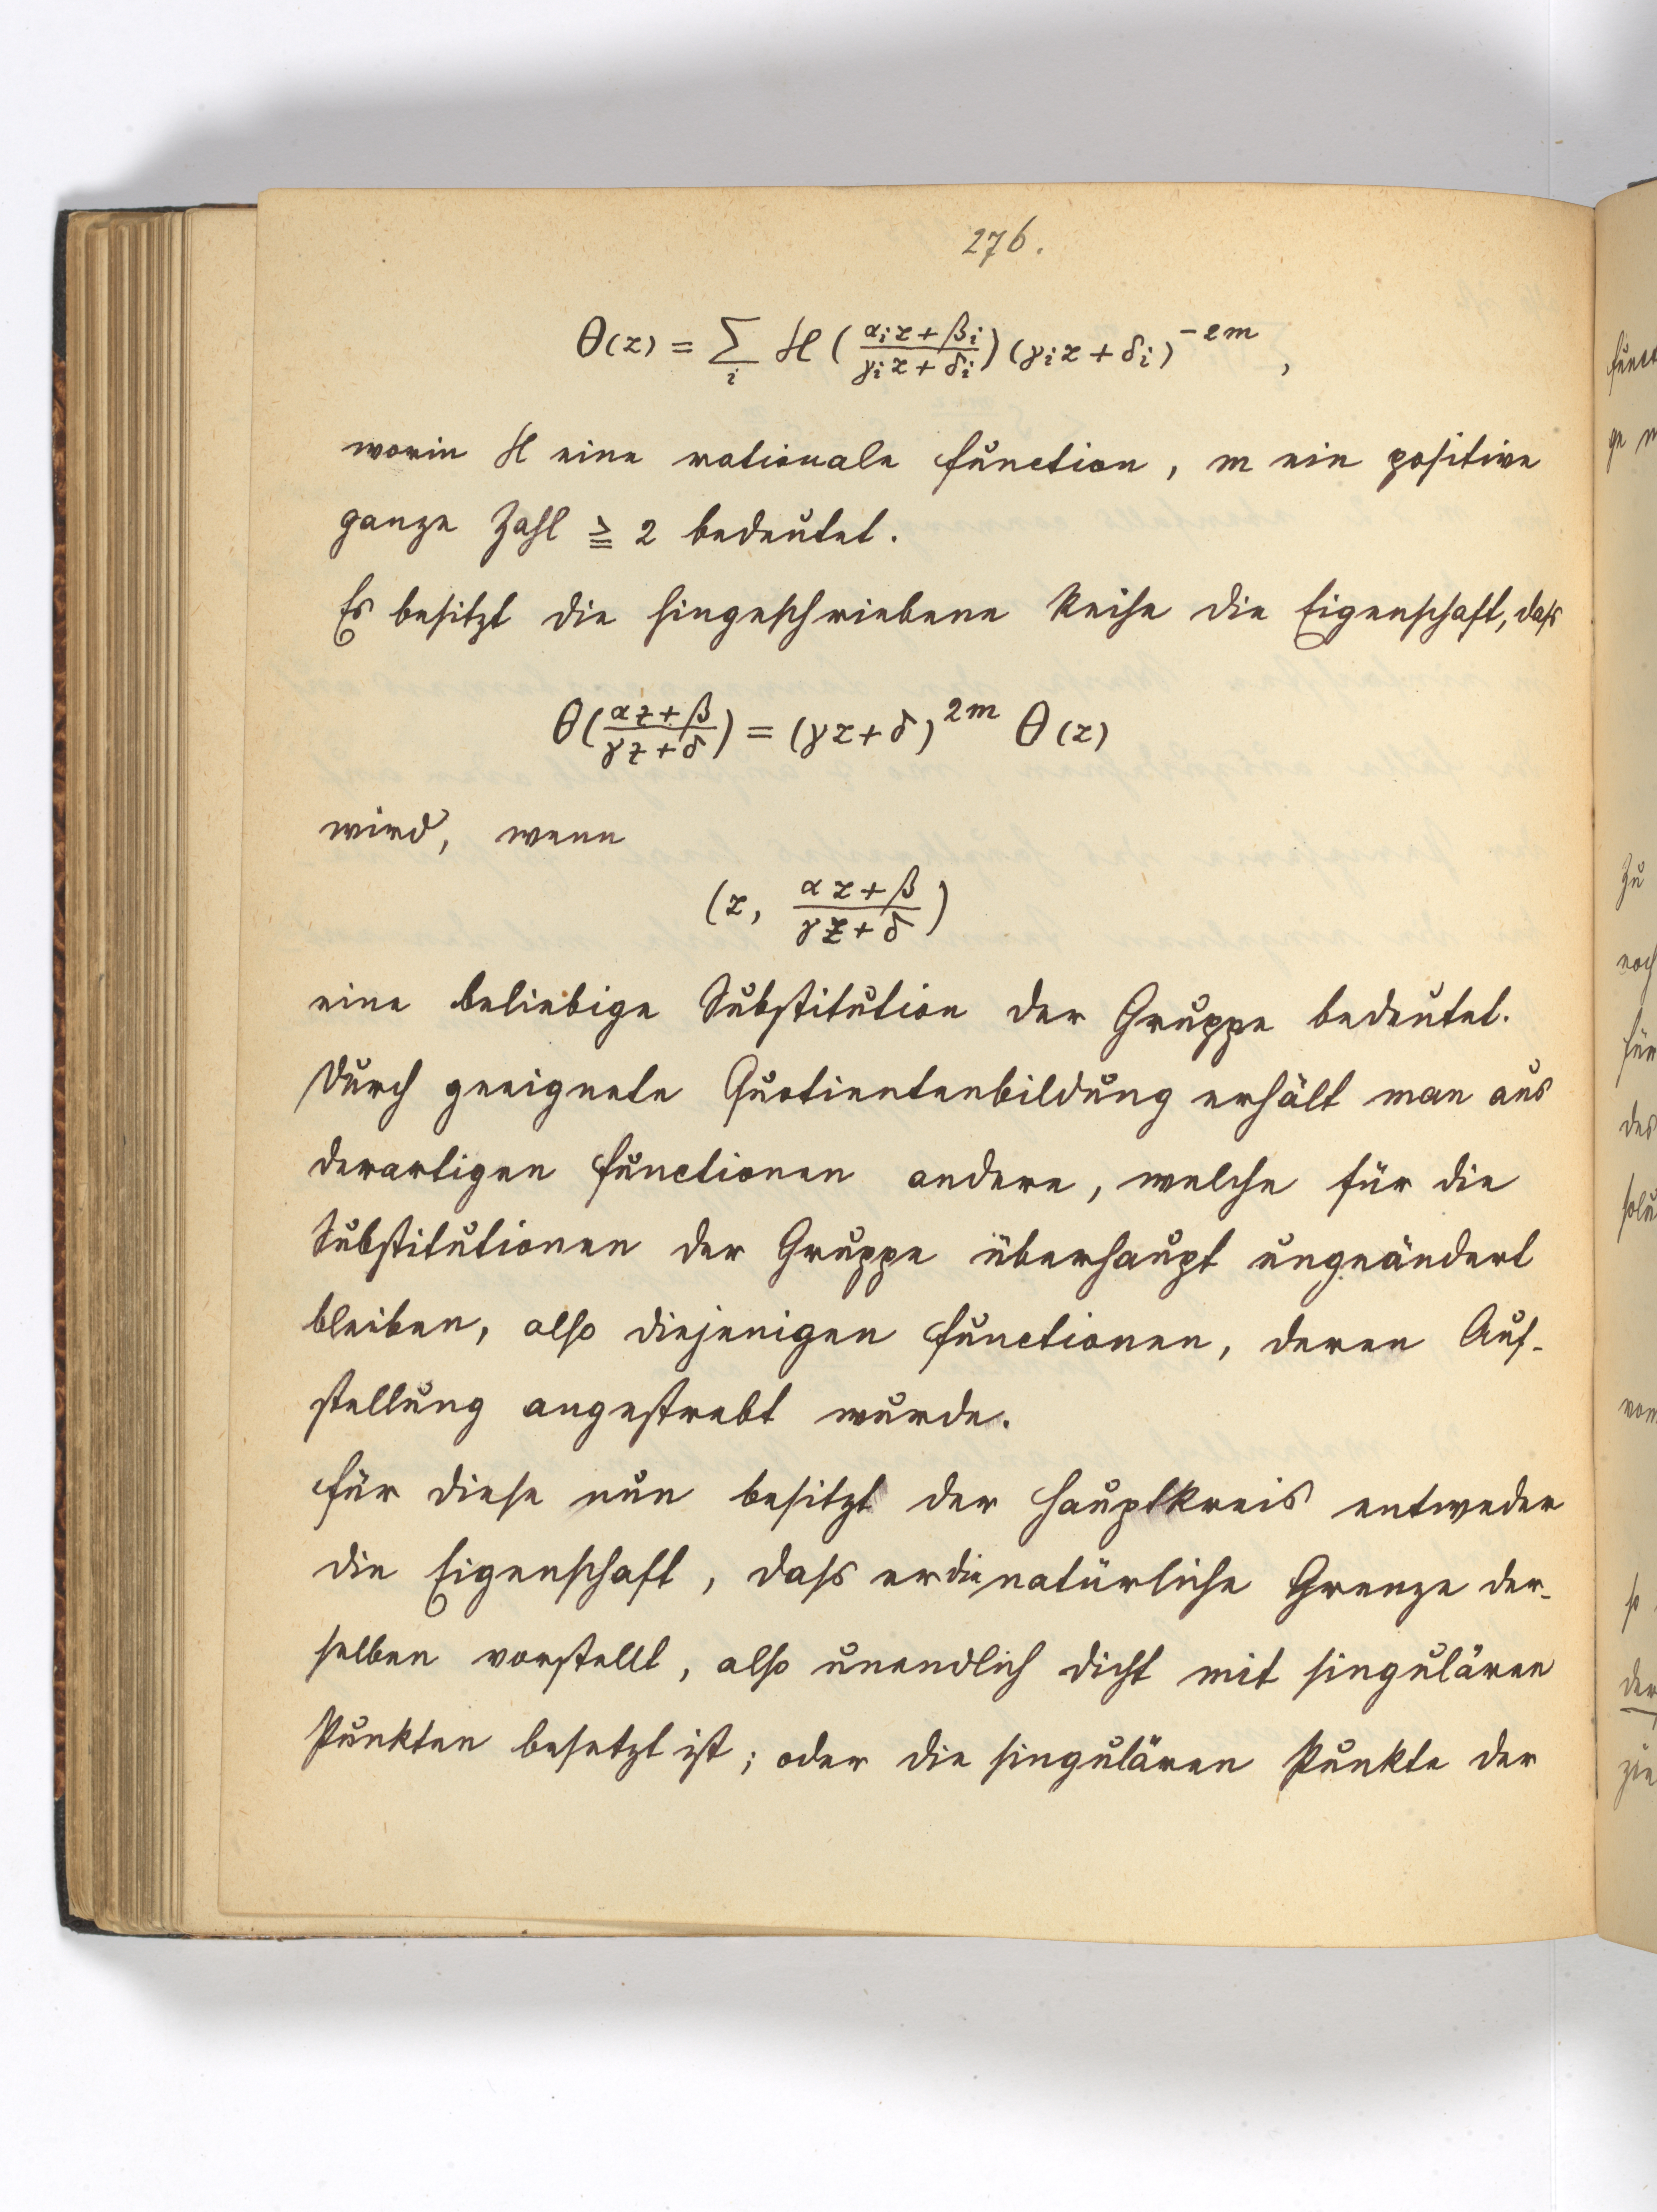 276.
Θ(z) = ∑_i H ( (α_i z + β_i) / (γ_i z + δ_i) ) (γ_i z + δ_i)^{-2m} ,
worin H eine rationale Function, m ein positive
ganze Zahl ≧ 2 bedeutet.
Es besitzt die hingeschriebene Reihe die Eigenschaft, dass
Θ( (αz + β) / (γz + δ) ) = (γz + δ)^{2m} Θ(z)
wird, wenn
(z, (αz + β) / (γz + δ) )
eine beliebige Substitution der Gruppe bedeutet.
Durch geeignete Quotientenbildung erhält man aus
derartigen Functionen andere, welche für die
Substitutionen der Gruppe überhaupt ungeändert
bleiben, also diejenigen Functionen, deren Auf-
stellung angestrebt wurde.
Für diese nun besitzt der Hauptkreis entweder
die Eigenschaft, dass er die natürliche Grenze der-
selben vorstellt, also unendlich dicht mit singulären
Punkten besetzt ist; oder die singulären Punkte der